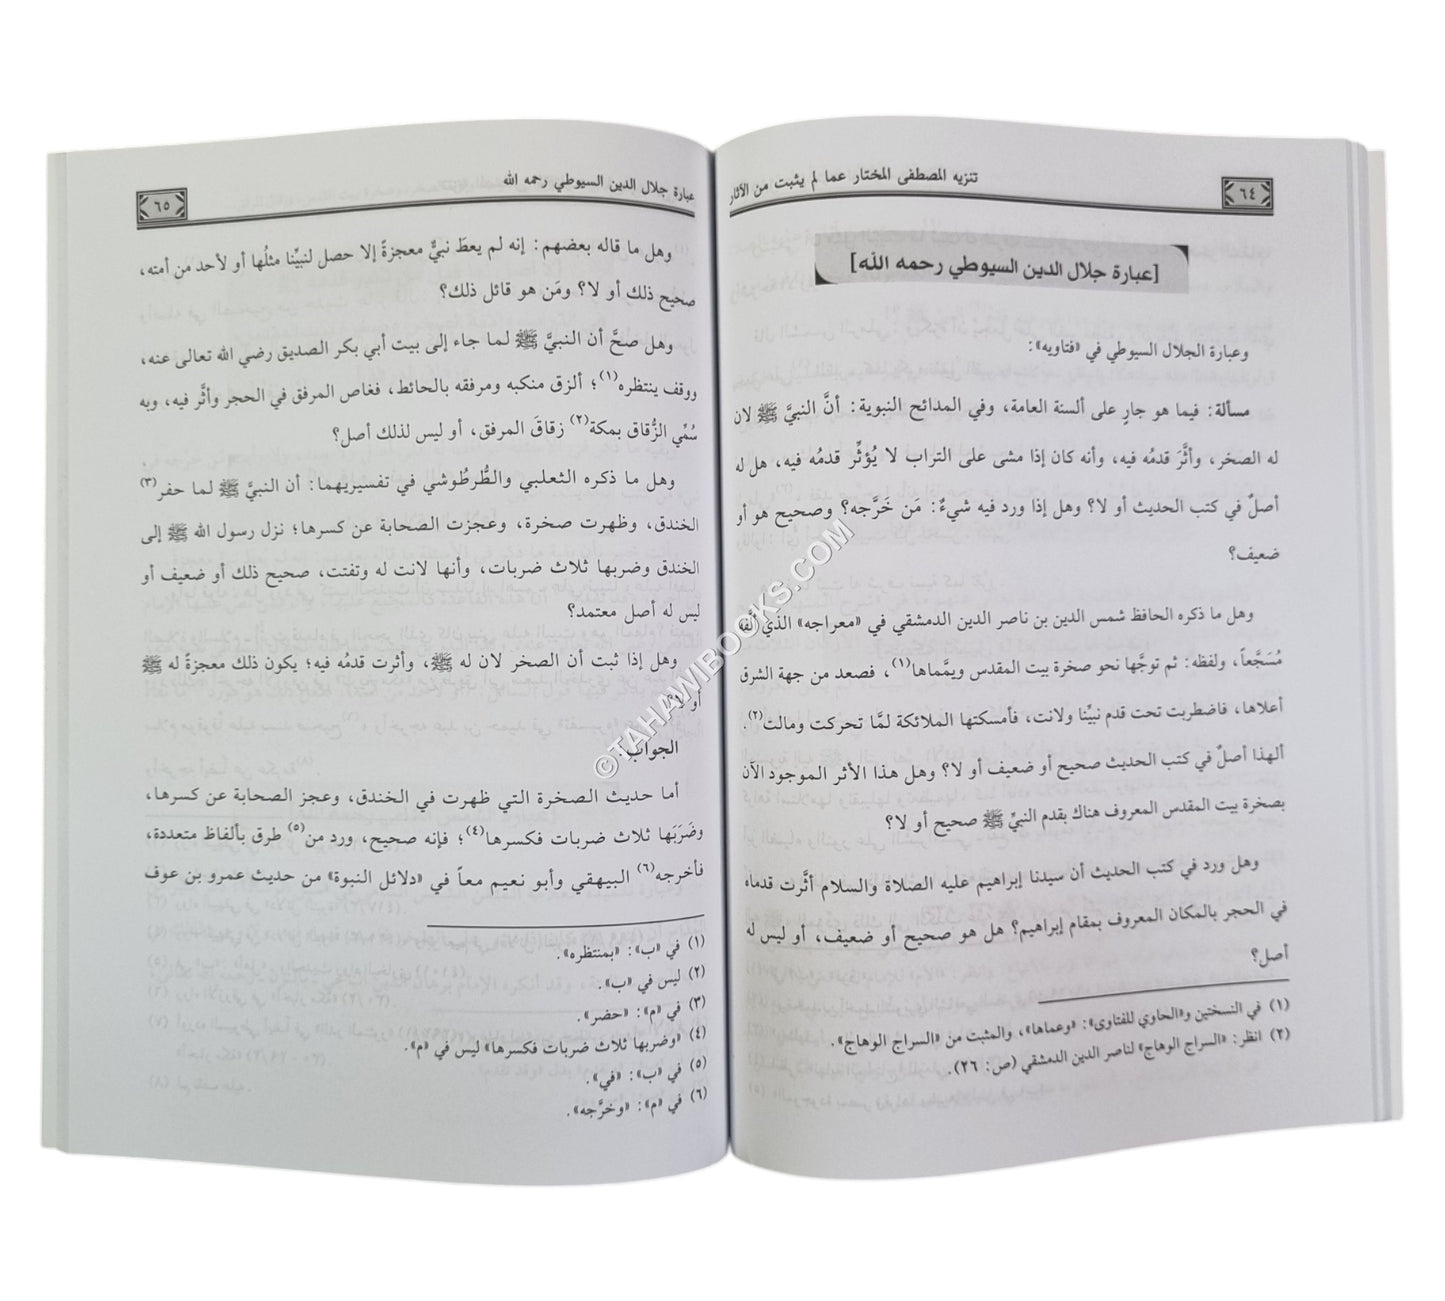 تنزيه المصطفى المختار عما لم يثبت من الآثار
٦٤
[عبارة جلال الدين السيوطي رحمه الله]
وعبارة الجلال السيوطي في «فتاويه»:
مسألة: فيما هو جارٍ على ألسنة العامة، وفي المدائح النبوية: أنَّ النبيَّ ﷺ لان
له الصخر، وأثَّرَ قدمُه فيه، وأنه كان إذا مشى على التراب لا يُؤثِّر قدمُه فيه، هل له
أصلٌ في كتب الحديث أو لا؟ وهل إذا ورد فيه شيءٌ: مَن خَرَّجه؟ وصحيح هو أو
ضعيف؟
وهل ما ذكره الحافظ شمس الدين بن ناصر الدين الدمشقي في «معراجه» الذي ألَّفه
مُسَجَّعاً، ولفظه: ثم توجَّها نحو صخرة بيت المقدس ويمَّماها(١)، فصعد من جهة الشرق
أعلاها، فاضطربت تحت قدم نبيِّنا ولانت، فأمسكتها الملائكة لمَّا تحركت ومالت(٢).
ألهذا أصلٌ في كتب الحديث صحيح أو ضعيف أو لا؟ وهل هذا الأثر الموجود الآن
بصخرة بيت المقدس المعروف هناك بقدم النبيِّ ﷺ صحيح أو لا؟
وهل ورد في كتب الحديث أن سيدنا إبراهيم عليه الصلاة والسلام أثَّرت قدماه
في الحجر بالمكان المعروف بمقام إبراهيم؟ هل هو صحيح أو ضعيف، أو ليس له
أصل؟
(١) في النسختين و«الحاوي للفتاوى»: «وعماها»، والمثبت من «السراج الوهاج».
(٢) انظر: «السراج الوهاج» لناصر الدين الدمشقي (ص: ٢٦).
عبارة جلال الدين السيوطي رحمه الله
٦٥
وهل ما قاله بعضهم: إنه لم يعطَ نبيٌّ معجزةً إلا حصل لنبيِّنا مثلُها أو لأحد من أمته،
صحيح ذلك أو لا؟ ومَن هو قائل ذلك؟
وهل صحَّ أن النبيَّ ﷺ لما جاء إلى بيت أبي بكر الصديق رضي الله تعالى عنه،
ووقف ينتظره(١)؛ ألزق منكبه ومرفقه بالحائط، فغاص المرفق في الحجر وأثَّر فيه، وبه
سُمِّي الزُّقاق بمكة(٢) زقاقَ المرفق، أو ليس لذلك أصل؟
وهل ما ذكره الثعلبي والطُّرطُوشي في تفسيريهما: أن النبيَّ ﷺ لما حفر(٣)
الخندق، وظهرت صخرة، وعجزت الصحابة عن كسرها؛ نزل رسول الله ﷺ إلى
الخندق وضربها ثلاث ضربات، وأنها لانت له وتفتت، صحيح ذلك أو ضعيف أو
ليس له أصل معتمد؟
وهل إذا ثبت أن الصخر لان له ﷺ، وأثرت قدمُه فيه؛ يكون ذلك معجزةً له ﷺ
أو لا؟
الجواب:
أما حديث الصخرة التي ظهرت في الخندق، وعجز الصحابة عن كسرها،
وضَرَبَها ثلاث ضربات فكسرها(٤)؛ فإنه صحيح، ورد من(٥) طرق بألفاظ متعددة،
فأخرجه(٦) البيهقي وأبو نعيم معاً في «دلائل النبوة» من حديث عمرو بن عوف
(١) في «ب»: «بمنتظره».
(٢) ليس في «ب».
(٣) في «م»: «حضر».
(٤) «وضربها ثلاث ضربات فكسرها» ليس في «م».
(٥) في «ب»: «في».
(٦) في «م»: «وخرَّجه».
©TAHAWIBOOKS.COM